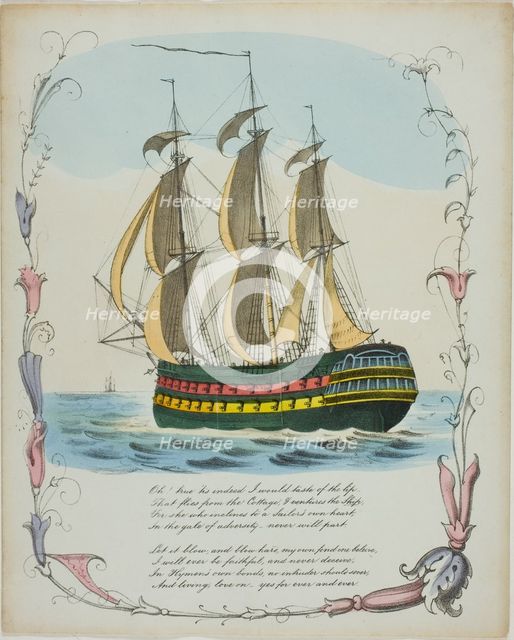 Oh! true 'tis indeed I would taste of the lip
That flies from the Cottage, & ventures the Ship,
For she who inclines to a Sailor's own heart,
In the gale of adversity – never will part.
Let it blow, and blow hard, my own fond one believe,
I will ever be faithful, and never deceive,
In Hymen's own bonds, no intruder should sever,
And living, love on – yes for ever and ever.
Heritage
Heritage
Heritage
Heritage
Heritage
Heritage
Heritage
Heritage